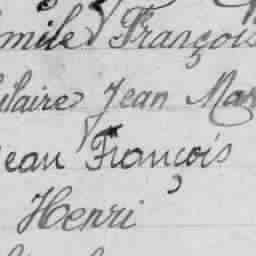 mile François
ilaire Jean Mar
ean François
Henri